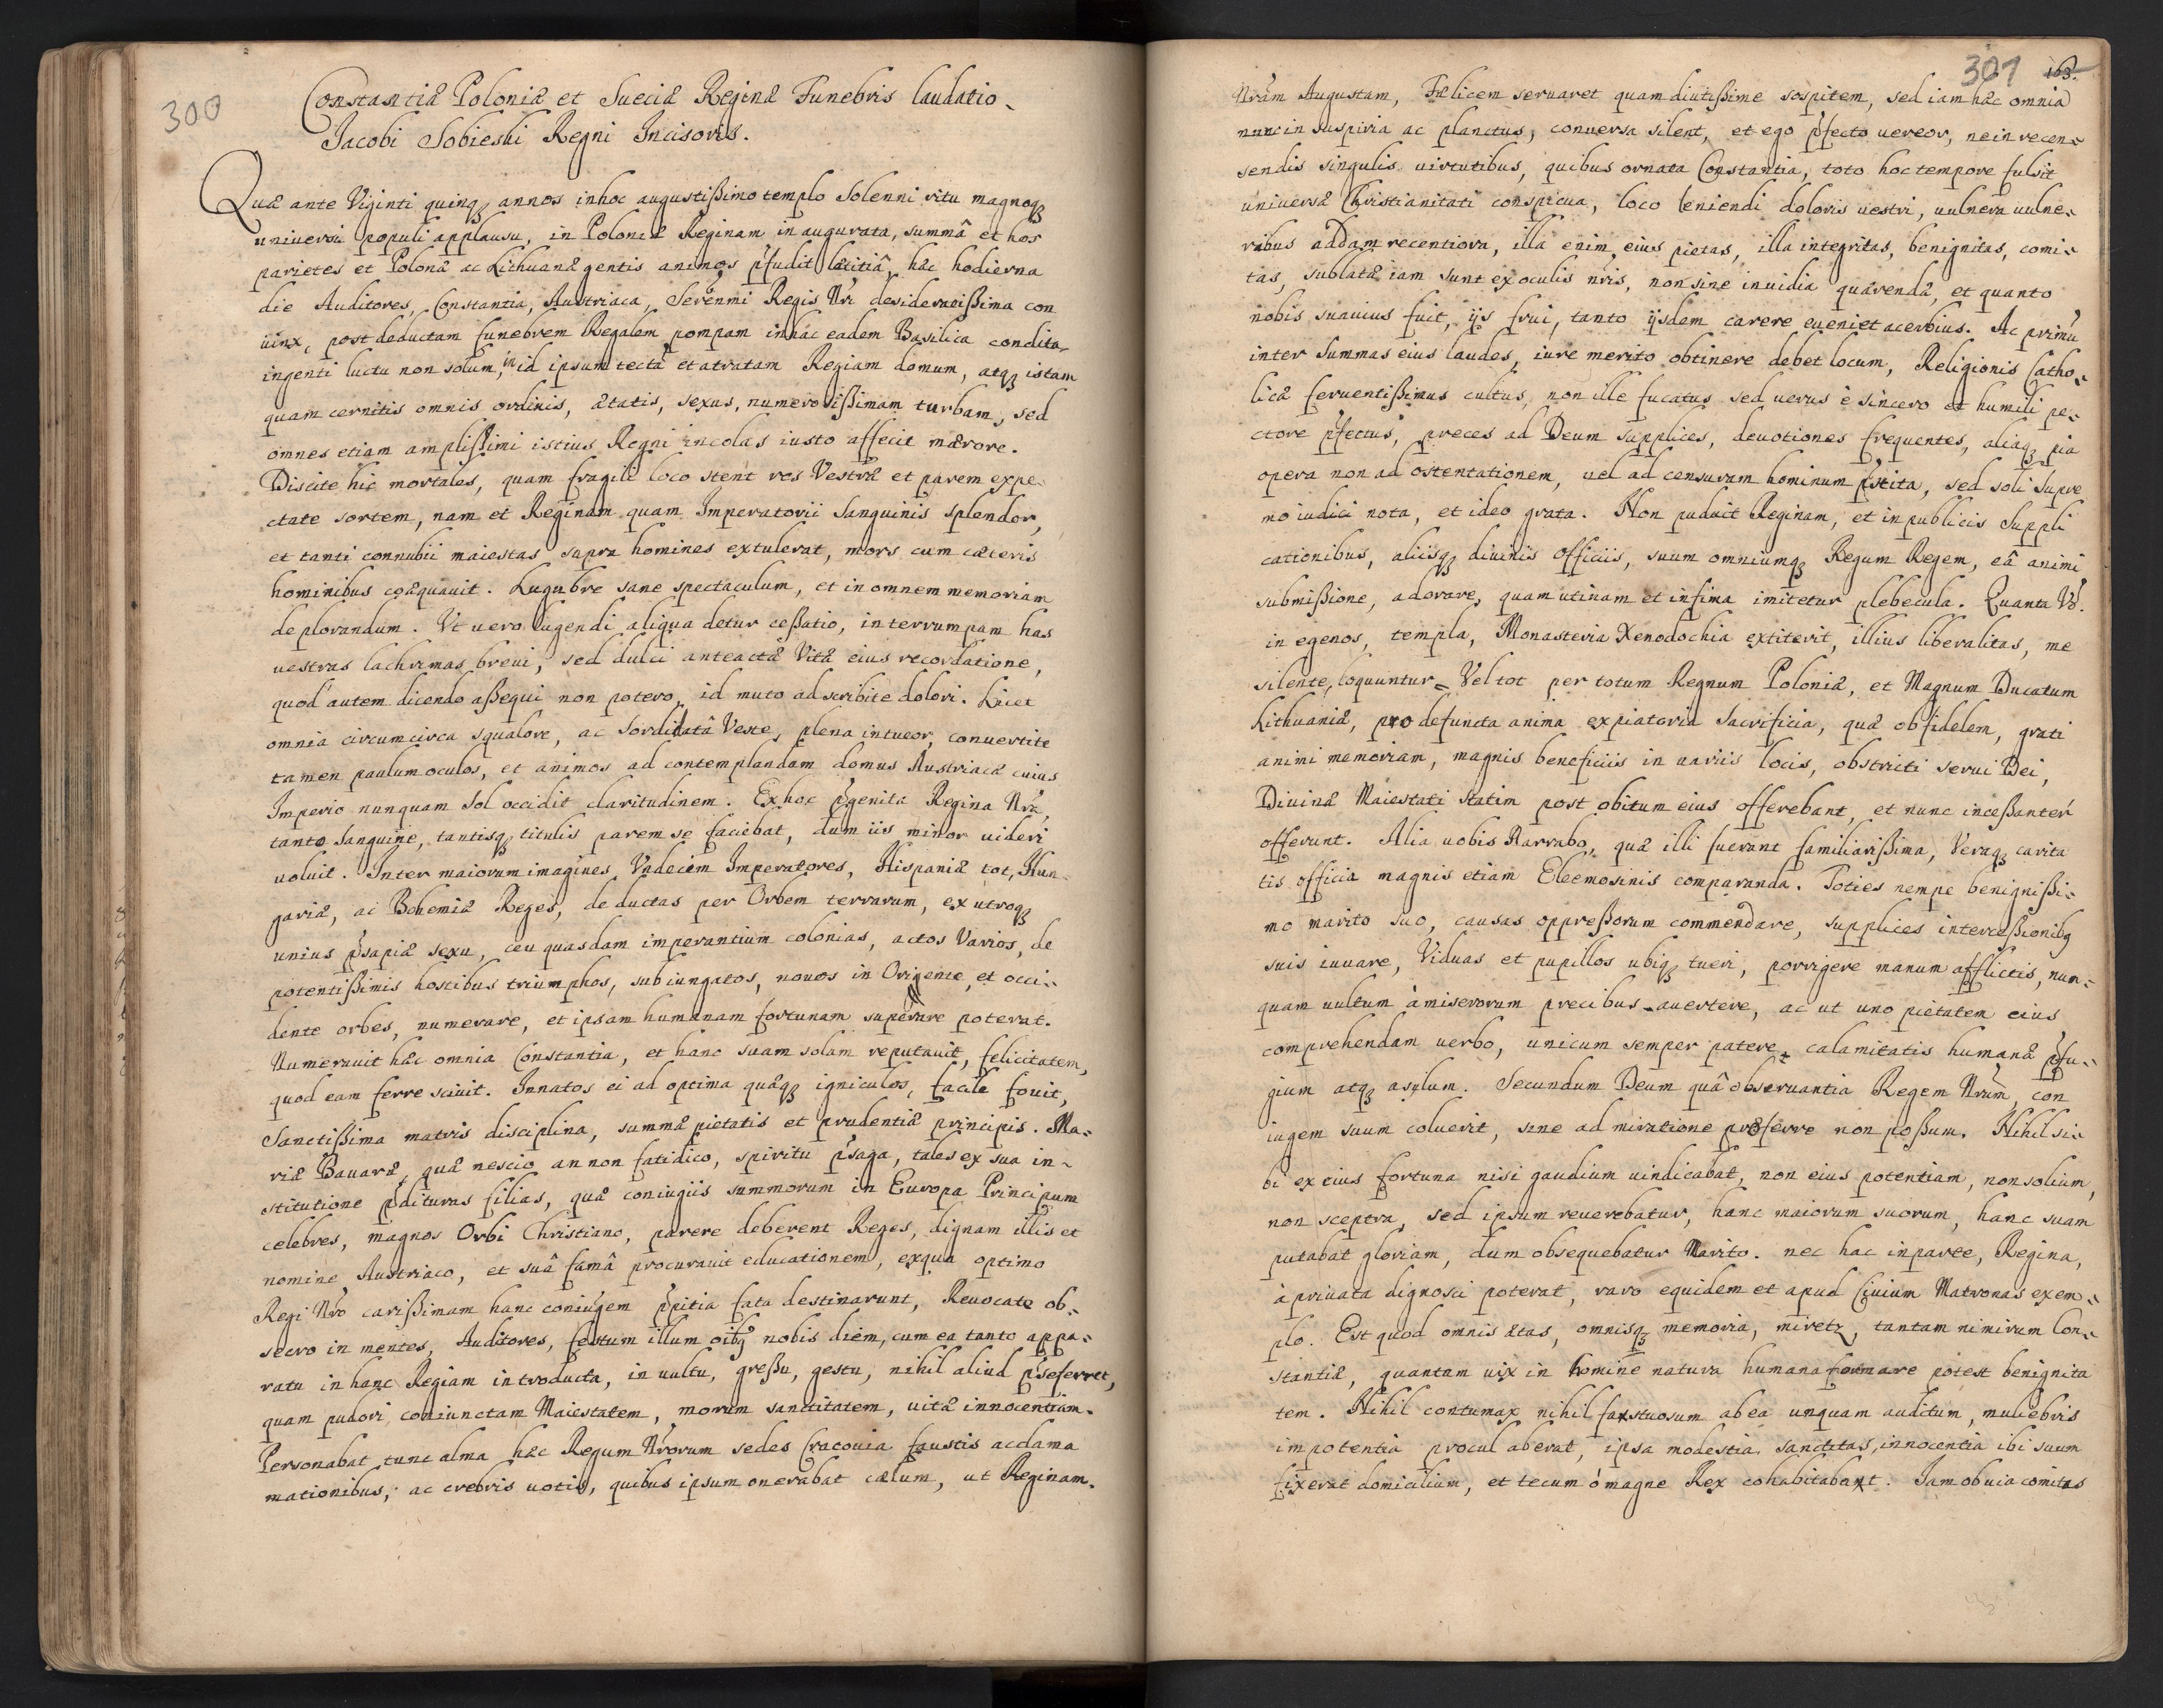 300
Constantiæ Poloniæ et Sueciæ Reginæ Funebris laudatio
Jacobi Sobieski Regni Incisoris.
Quæ ante Viginti quinq; annos in hoc augustißimo templo Solenni ritu magnoq;
uniuersi populi applausu, in Poloniæ Reginam inaugurata, summâ et hos
parietes et Polonæ ac Lithuanæ gentis animos p̃fudit lætitiâ, hæc hodierna
die Auditores, Constantia, Austriaca, Serenmi Regis Nri desideratißima con
iunx, post deductam funebrem Regalem pompam in hac eadem Basilica condita,
ingenti luctu non solum, in id ipsum tectâ et atratam Regiam domum, atq; istam
quam cernitis omnis ordinis, ætatis, sexus, numerosißimam turbam, sed
omnes etiam amplißimi istius Regni incolas iusto affecit mærore.
Discite hic mortales, quam fragili loco stent res Vestræ et parem expe-
ctate sortem, nam et Reginam quam Imperatorii Sanguinis splendor,
et tanti connubii maiestas supra homines extulerat, mors cum cæteris
hominibus coæquauit. Lugubre sane spectaculum, et in omnem memoriam
deplorandum. Vt uero lugendi aliqua detur ceßatio, interrumpam has
uestras lachrimas breui, sed dulci anteactæ Vitæ eius recordatione,
quod autem dicendo aßequi non potero, id muto adscribite dolori. Licet
omnia circumcirca squalore, ac Sordidatâ Veste, plena intueor, conuertite
tamen paulum oculos, et animos ad contemplandam domus Austriacæ cuius
Imperio nunquam Sol occidit claritudinem. Ex hoc p̃genita Regina Nra,
tanto Sanguine, tantisq; titulis parem se faciebat, dum iis minor uideri
uoluit. Inter maiorum imagines Vndecim Imperatores, Hispaniæ tot, Hun-
gariæ, ac Bohemiæ Reges, deductas per Orbem terrarum, ex utroq;
unius p̃sapiæ sexu, ceu quasdam imperantium colonias, actos Varios, de
potentißimis hostibus triumphos, subiungatos, nouos in Oriente, et occi-
dente orbes, numerare, et ipsam humanam fortunam superare poterat.
Numerauit hæc omnia Constantia, et hanc suam solam reputauit, felicitatem,
quod eam ferre sciuit. Innatos ei ad optima quæq; igniculos, facile fouit,
Sanctißima matris disciplina, summæ pietatis et prudentiæ principis. Ma-
riæ Bauaræ, quæ nescio an non fatidico, spiritu p̃saga, tales ex sua in-
stitutione p̃dituras filias, quæ coniugiis summorum in Europa Principum
celebres, magnos Orbi Christiano, parere deberent Reges, dignam illis et
nomine Austriaco, et suâ famâ procurauit educationem, ex qua optimo
Regi Nro carißimam hanc coniugem p̃pitia fata destinarunt, Reuocate ob-
secro in mentes, Auditores, festum illum oibq nobis diem, cum ea tanto appa-
ratu in hanc Regiam introducta, in uultu, greßu, gestu, nihil aliud p̃seferret,
quam pudori, coniunctam Maiestatem, morum sanctitatem, uitæ innocentiam.
Personabat tunc alma hæc Regum Nrorum sedes Cracouia faustis acclama
mationibus, ac crebris uotis, quibus ipsum onerabat cælum, ut Reginam.
301 163.
Nram Augustam, Fælicem seruaret quam diutißime sospitem, sed iam hæc omnia
nunc in suspiria ac planctus, conuersa silent, et ego p̃fecto uereor, ne in recen-
sendis singulis uirtutibus, quibus ornata Constantia, toto hoc tempore fulsit
uniuersæ Christianitati conspicua, loco leniendi doloris uestri, uulnera uulne-
ribus addam recentiora, illa enim eius pietas, illa integritas, benignitas, comi-
tas, sublatæ iam sunt ex oculis nris, non sine inuidia quærendæ, et quanto
nobis suauius fuit, ijs frui, tanto ijsdem carere eueniet acerbius. Ac primũ
inter Summas eius laudes, iure merito obtinere debet locum, Religionis Catho-
licæ feruentißimus cultus, non ille fucatus sed uerus è sincero et humili pe-
ctore p̃fectus, preces ad Deum supplices, deuotiones frequentes, aliaq; pia
opera non ad ostentationem, uel ad censuram hominum p̃stita, sed soli Supre
mo iudici nota, et ideo grata. Non puduit Reginam, et in publicis Suppli
cationibus, aliisq; diuinis officiis, suum omniumq; Regum Regem, eâ animi
submißione, adorare, quam utinam et infima imitetur plebecula. Quanta Vo.
in egenos, templa, Monasteria Xenodochia extiterit, illius liberalitas, me
silente, loquuntur Vel tot per totum Regnum Poloniæ, et Magnum Ducatum
Lithuaniæ, pro defuncta anima expiatoria Sacrificia, quæ ob fidelem, grati
animi memoriam, magnis beneficiis in uariis locis, obstricti serui Dei,
Diuinæ Maiestati statim post obitum eius offerebant, et nunc inceßanter
offerunt. Alia uobis Narrabo, quæ illi fuerant familiarißima, Veraq; carita
tis officia magnis etiam Eleemosinis comparanda. Toties nempe benignißi-
mo marito suo, causas oppreßorum commendare, supplices interceßionibq
suis iuuare, Viduas et pupillos ubiq; tueri, porrigere manum afflictis, nun-
quam uultum à miserorum precibus auertere, ac ut uno pietatem eius
comprehendam uerbo, unicum semper patere, calamitatis humanæ p̃fu-
gium atq; asylum. Secundum Deum quâ obseruantia Regem Nrum, con
iugem suum coluerit, sine admiratione proferre non poßum. Nihil si-
bi ex eius fortuna nisi gaudium uindicabat, non eius potentiam, non solium,
non sceptra, sed ipsum reuerebatur, hanc maiorum suorum, hanc suam
putabat gloriam, dum obsequebatur Marito. nec hac in parte, Regina,
à priuata dignosci poterat, raro equidem et apud Ciuium Matronas exem-
plo. Est quod omnis ætas, omnisq; memoria, miretz, tantam nimirum Con-
stantiæ, quantam uix in homine natura humana formare potest benignita
tem. Nihil contumax nihil fastuosum ab ea unquam auditum, muliebris
impotentia procul aberat, ipsa modestia sanctitas, innocentia ibi suum
fixerat domicilium, et tecum ô magne Rex cohabitabant. Iam obuia comitas